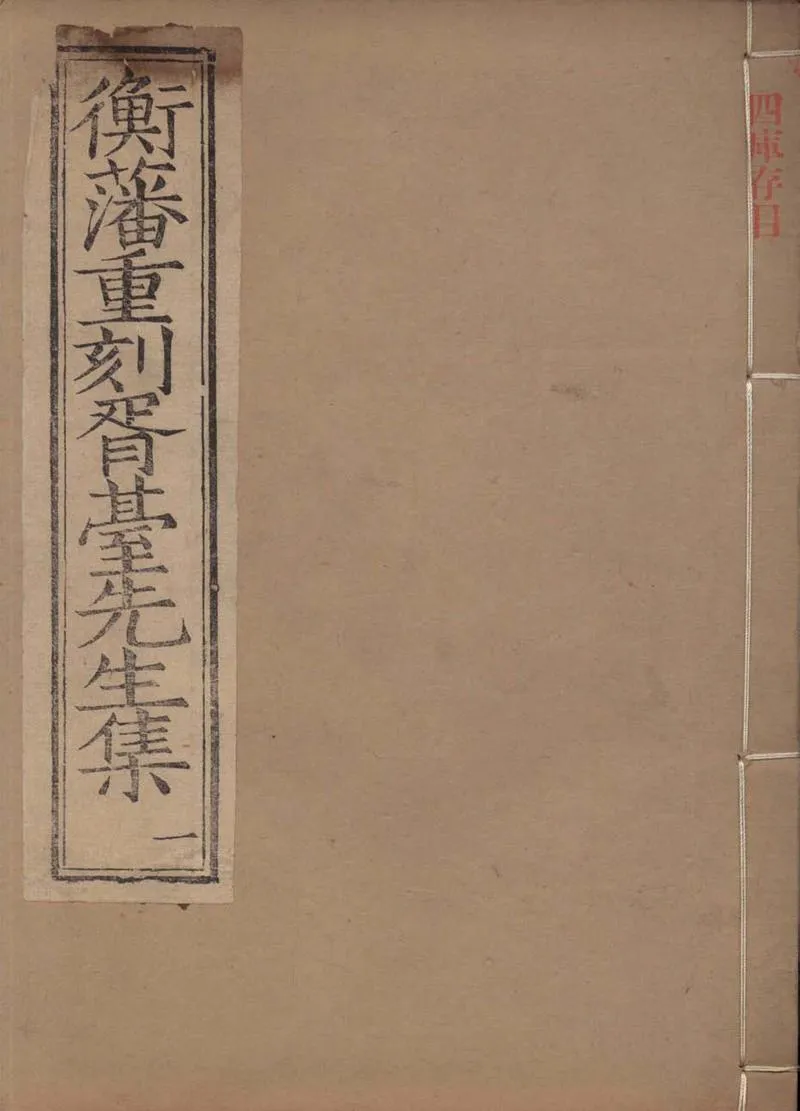 四庫存目
衡藩重刻胥臺先生集
一